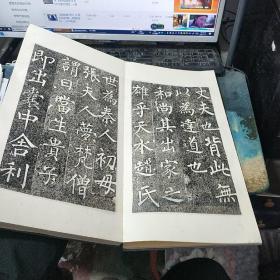 丈夫也背此無
以為達道也
和尚其出家之
雄乎天水趙氏
世為秦人初母
張夫人夢梵僧
謂曰當生貴子
即出囊中舍利